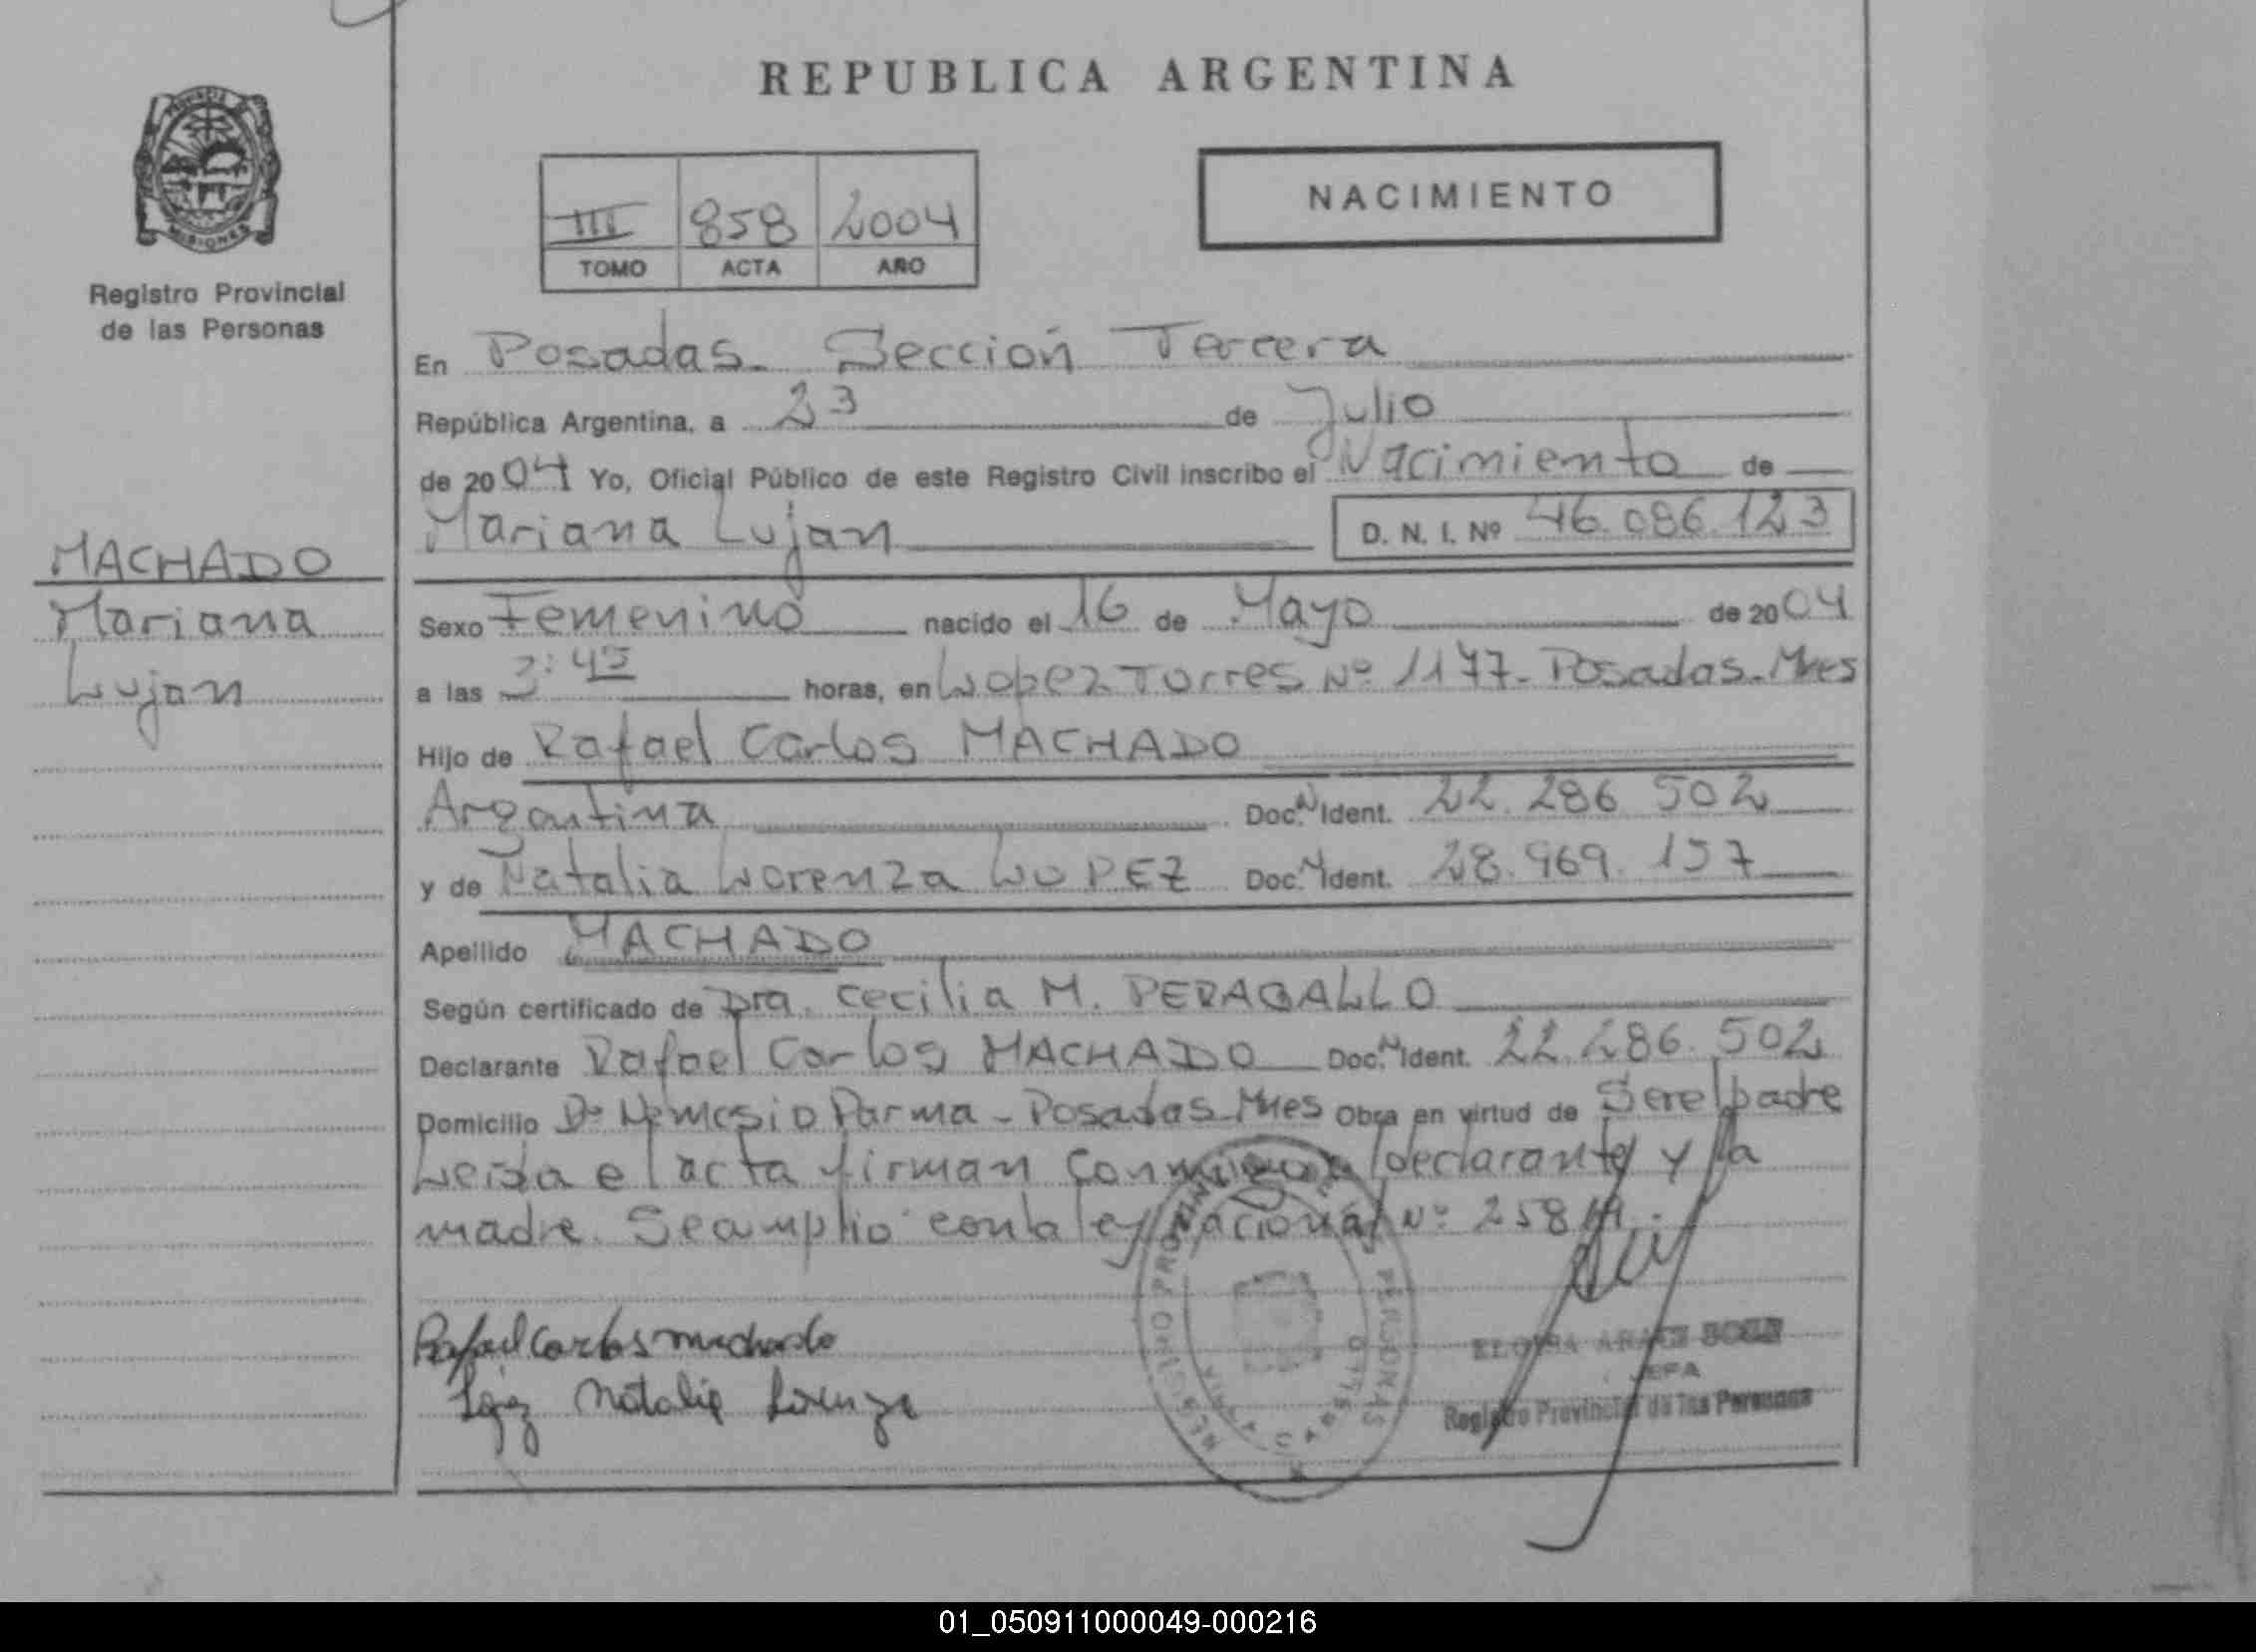 REPUBLICA ARGENTINA
PROVINCIA DE
MISIONES
Registro Provincial
de las Personas
NACIMIENTO
III 858 2004
TOMO ACTA AÑO
En Posadas. Sección Tercera
República Argentina, a 23 de Julio
de 2004 Yo, Oficial Público de este Registro Civil inscribo el Nacimiento de
Mariana Lujan D. N. I. Nº 46.086.123
MACHADO
Mariana
Lujan
Sexo Femenino nacido el 16 de Mayo de 2004
a las 3:45 horas, en Lopez Torres Nº 1177. Posadas. Mnes
Hijo de Rafael Carlos MACHADO
Argentina Doc. N Ident. 22.286.502
y de Natalia Lorenza LOPEZ Doc. N Ident. 28.969.157
Apellido MACHADO
Según certificado de Dra. Cecilia M. PERAGALLO
Declarante Rafael Carlos MACHADO Doc. N Ident. 22.286.502
Domicilio Dº Nemesio Parma - Posadas Mnes Obra en virtud de Ser el padre
Leida el acta firman conmigo el declarante y la
madre. Se amplio con la ley Nacional Nº
Rafael Carlos Machado
López Natalia Lorenza
REGISTRO PROVINCIAL DE LAS PERSONAS
JEFA
Registro Provincial de las Personas
01_050911000049-000216